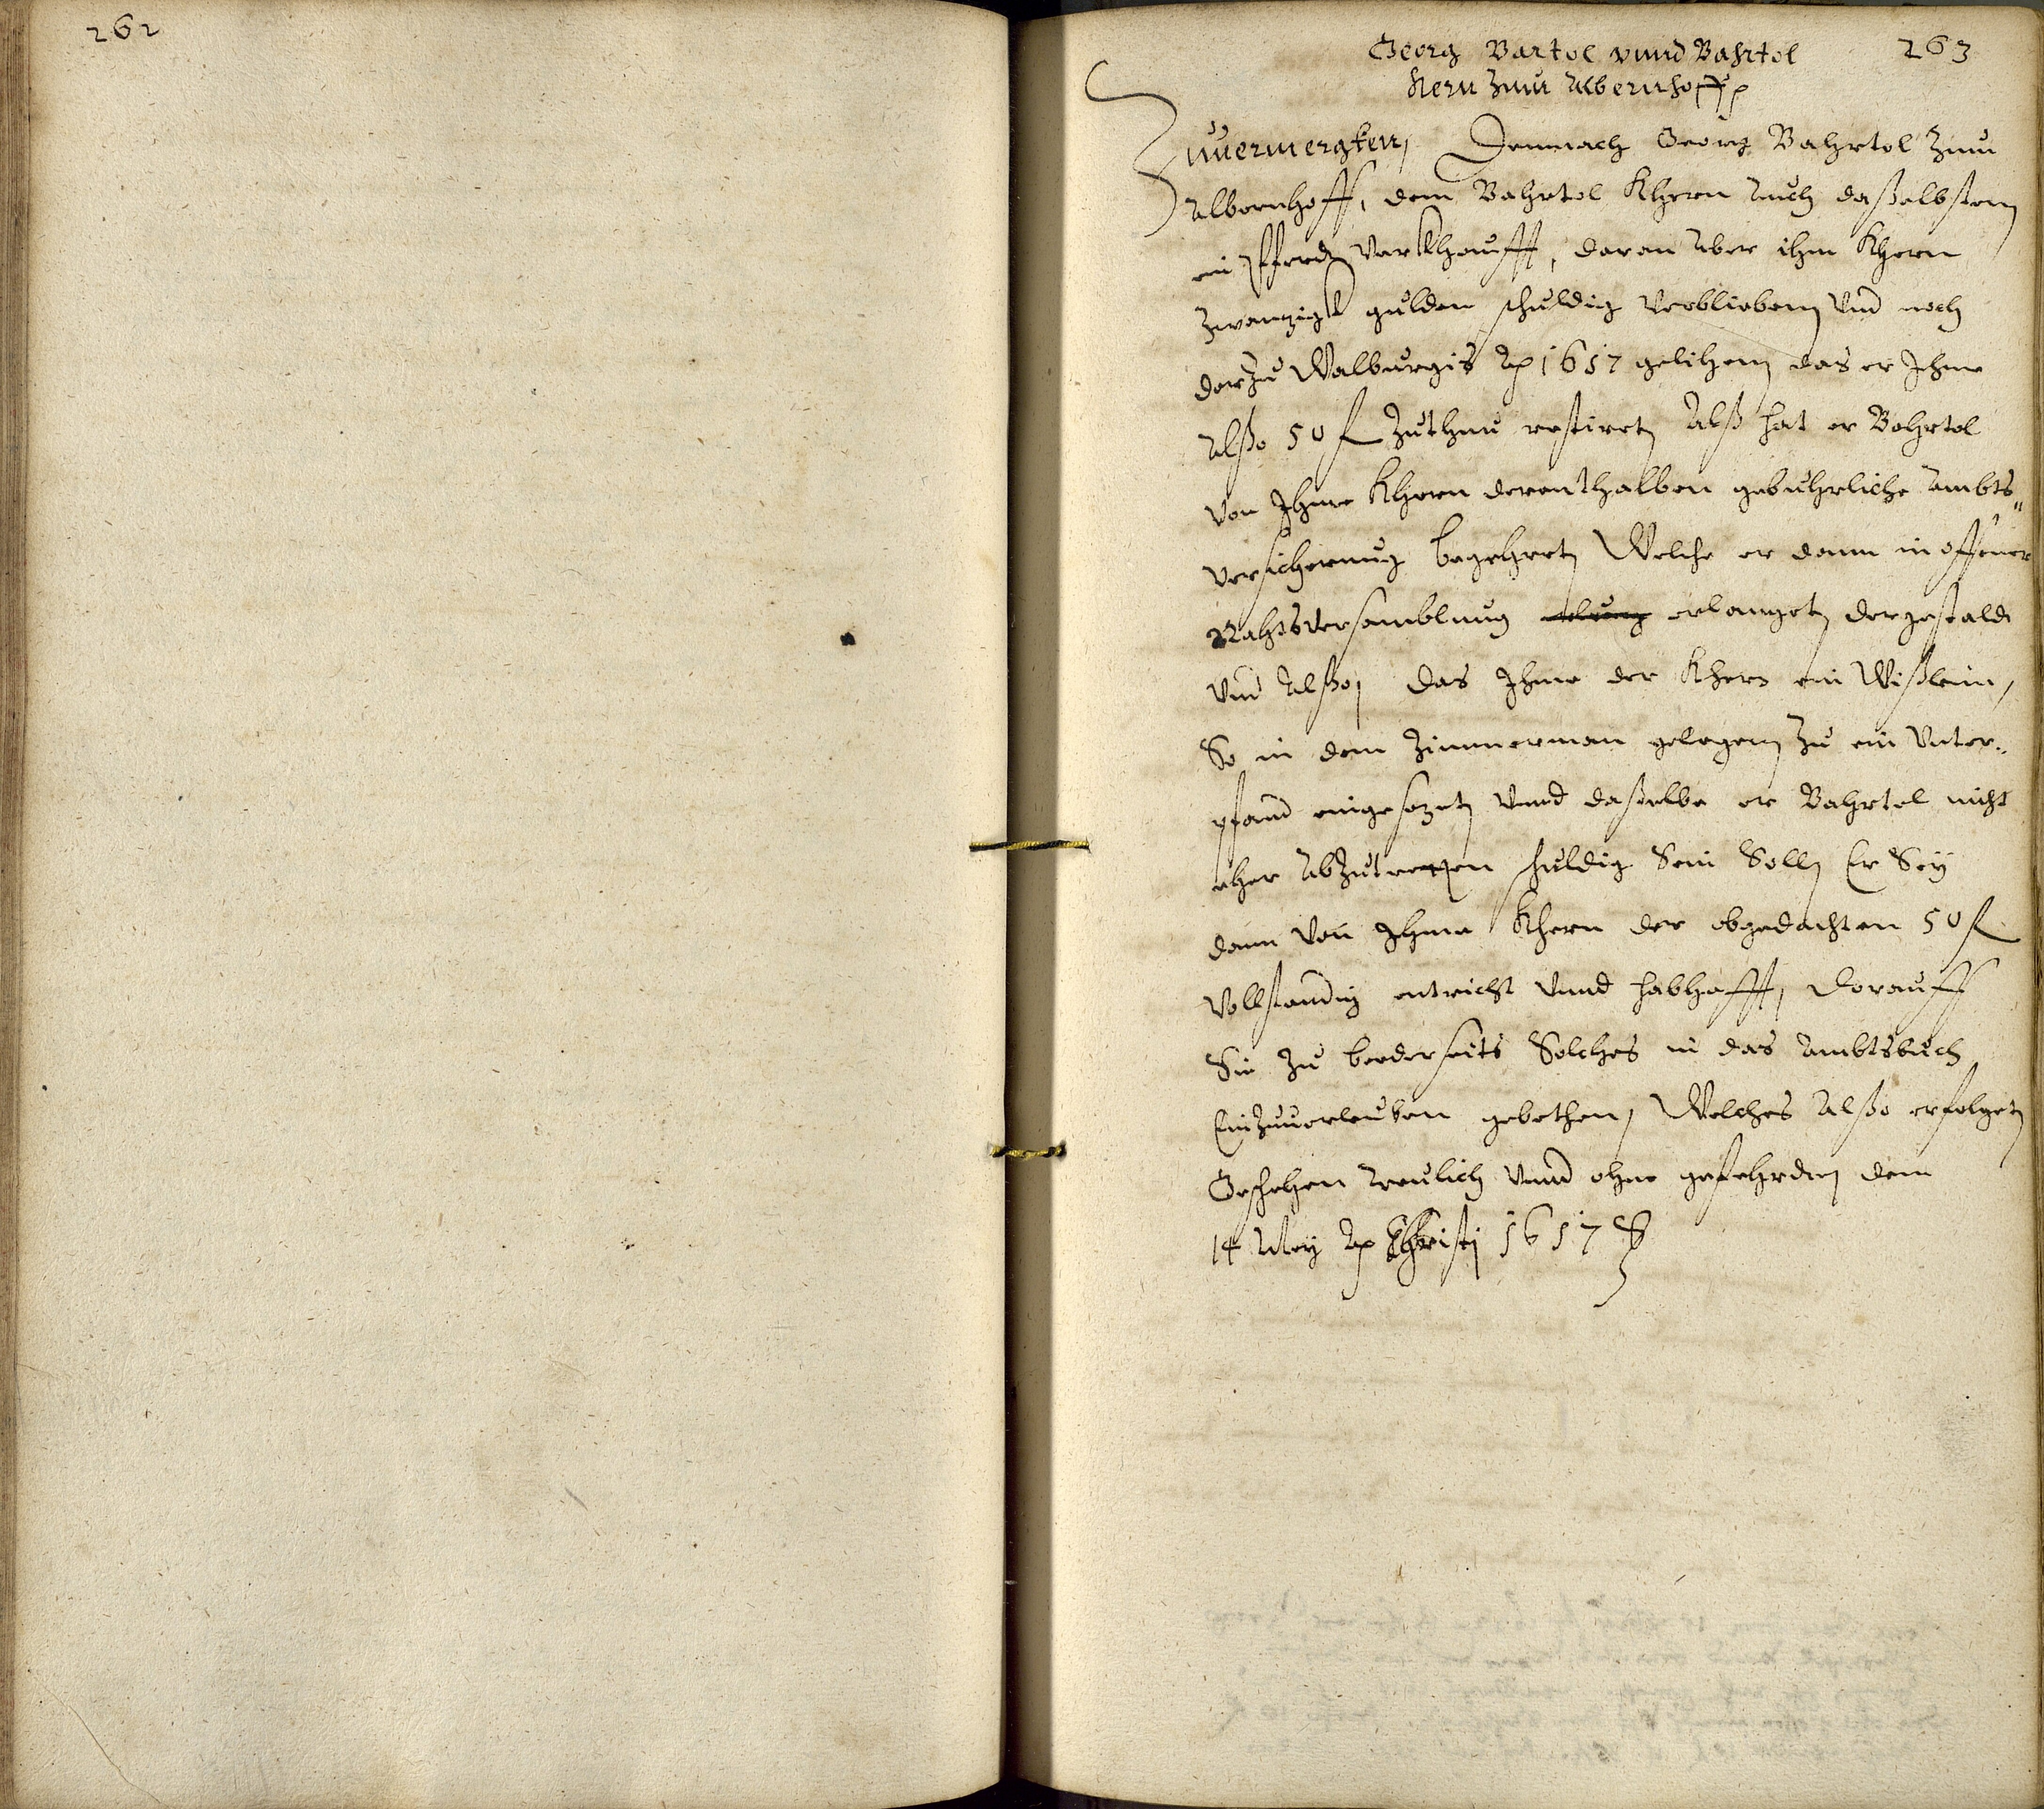 262
263
Georg Bartol vnnd Bahrtol
Kern Zum Albernhoff
Zuuermergken, Demnach Georg Bahrtol Zum
Albernhoff, dem Bahrtol Khern Auch daßelbsten
ein Pferd Verkhaufft, daran Aber ihm Khern
Zwanzigk gulden schuldig Verblieben Vnd noch
darzu Walburgis Ao 1657 gelihen das er Ihme
Alßo 50 fl Zuthun restiret Alß hat er Bahrtol
Von Ihme Khern derenthalben gebuhrliche Ambts„
Versicherung begehret Welche er dann in offener
Rahtsversamblung erlanget dergestald
Vnd Alßo, das Ihme der Khern ein Wißlein,
So in dem Zimmerman gelegen Zu ein Vnter„
pfand eingesezet Vnnd daßelbe er Bahrtol nicht
eher Abzutretten schuldig Sein Soll Er Sey
dann Von Ihme Khern der obgedachten 50 fl
Vollstandig entricht Vnnd habhafft, Darauff
Sie Zu beederseits Solches in das Ambtsbuch
Einzuuerleuben gebethen, Welches Alßo erfolget
Geschehen treulich Vnnd ohne gefehrden den
14 May Ao Christi 1657